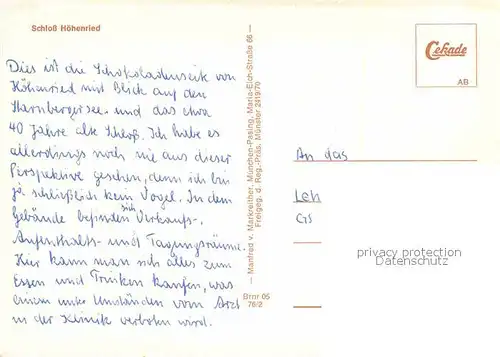 Schloß Höhenried
Dies ist die Schokoladenseite von
Höhenried mit Blick auf den
Starnbergersee und das etwa
40 Jahre alte Schloß. Ich habe es
allerdings noch nie aus dieser
Perspektive gesehen, denn ich bin
ja schließlich kein Vogel. In dem
Gebäude befinden sich Verkaufs-,
Aufenthalts- und Tagungsräume.
Hier kann man sich alles zum
Essen und Trinken kaufen, was
einem unter Umständen vom Arzt
in der Klinik verboten wird.
— Manfred v. Markreither, München-Pasing, Maria-Eich-Straße 66 —
Freigeg. d. Reg.-Präs. Münster 2419/70
Brnr 05
76/2
Cekade
AB
An das
Leh
privacy protection
Datenschutz